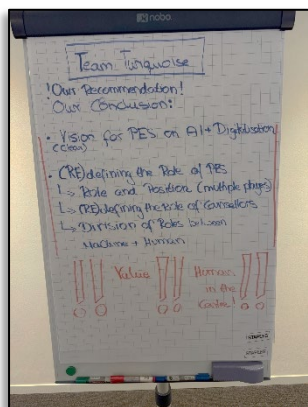 nobo
Team Turquoise
! Our Recommendation!
Our Conclusion:
• Vision for PES on AI + Digitilisation
(Clean)
• (RE)defining the Role of PES
↳ Role and Position (multiple
↳ (RE)defining the Role of Counsellors
↳ Division of Roles between
Machine + Human
Value Human
in the
Centre!